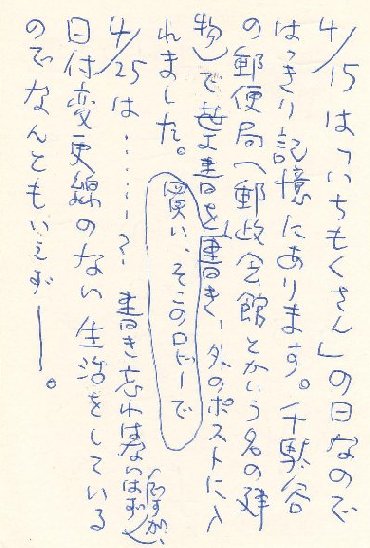 4/15は「いちもくさん」の日なので
はっきり記憶にあります。千駄谷
の郵便局(郵政会館とかいう名の建
物)で葉書を書き、外のポストに入
れました。
買い、そこのロビーで
4/25は……? 書き忘れはないはず
ですが、
日付変更線のない生活をしている
のでなんともいえずー。